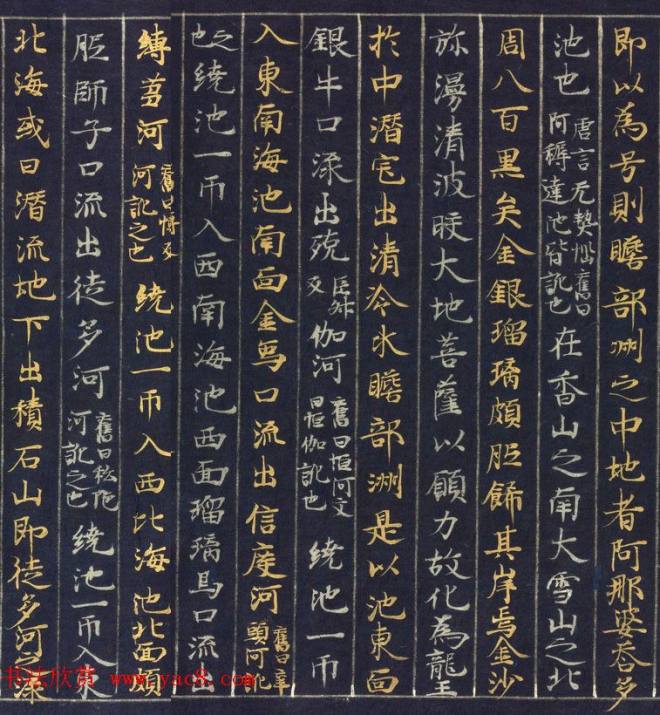 即以為号則瞻部州之中地者阿那婆荅多
池也唐言无熱惱舊曰阿耨達池皆訛也在香山之南大雪山之北
周八百黒矣金銀瑠璃頗胝餝其岸焉金沙
弥漫清波晈大地菩薩以願力故化為龍王
扵中潛宅出清冷水瞻部洲是以池東面
銀牛口流出殑伽河舊曰恒河又曰恒伽訛也繞池一帀
入東南海池南面金馬口流出信度河舊曰辛頭河訛
之也繞池一帀入西南海池西面瑠璃馬口流出
縛芻河舊曰博叉河訛之也繞池一帀入西北海池北面頗
胝師子口流出徙多河舊曰私陁河訛之也繞池一帀入東
北海或曰潛流地下出積石山即徙多河之流
书法欣赏 www.yac8.com